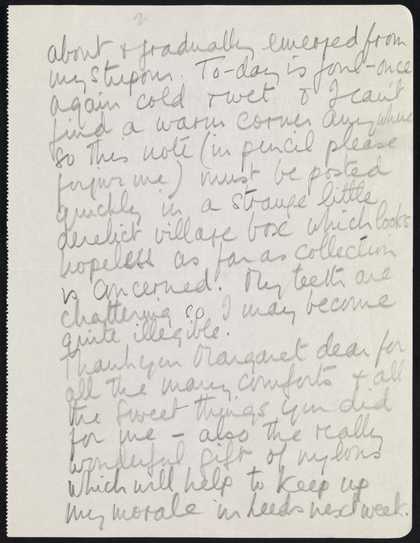 2
about & gradually emerged from
my stupor. To-day is foul - once
again cold & wet & I can't
find a warm corner anywhere
so this note (in pencil please
forgive me) must be posted
quickly in a strange little
derelict village box which looks
hopeless as far as collection
is concerned. My teeth are
chattering so I may become
quite illegible.
Thank you Margaret dear for
all the many comforts & all
the sweet things you did
for me – also the really
wonderful gift of nylons
which will help to keep up
my morale in Leeds next week.